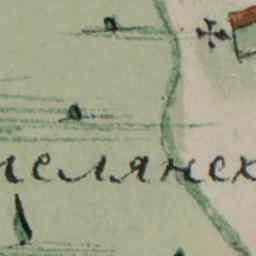 мелянск